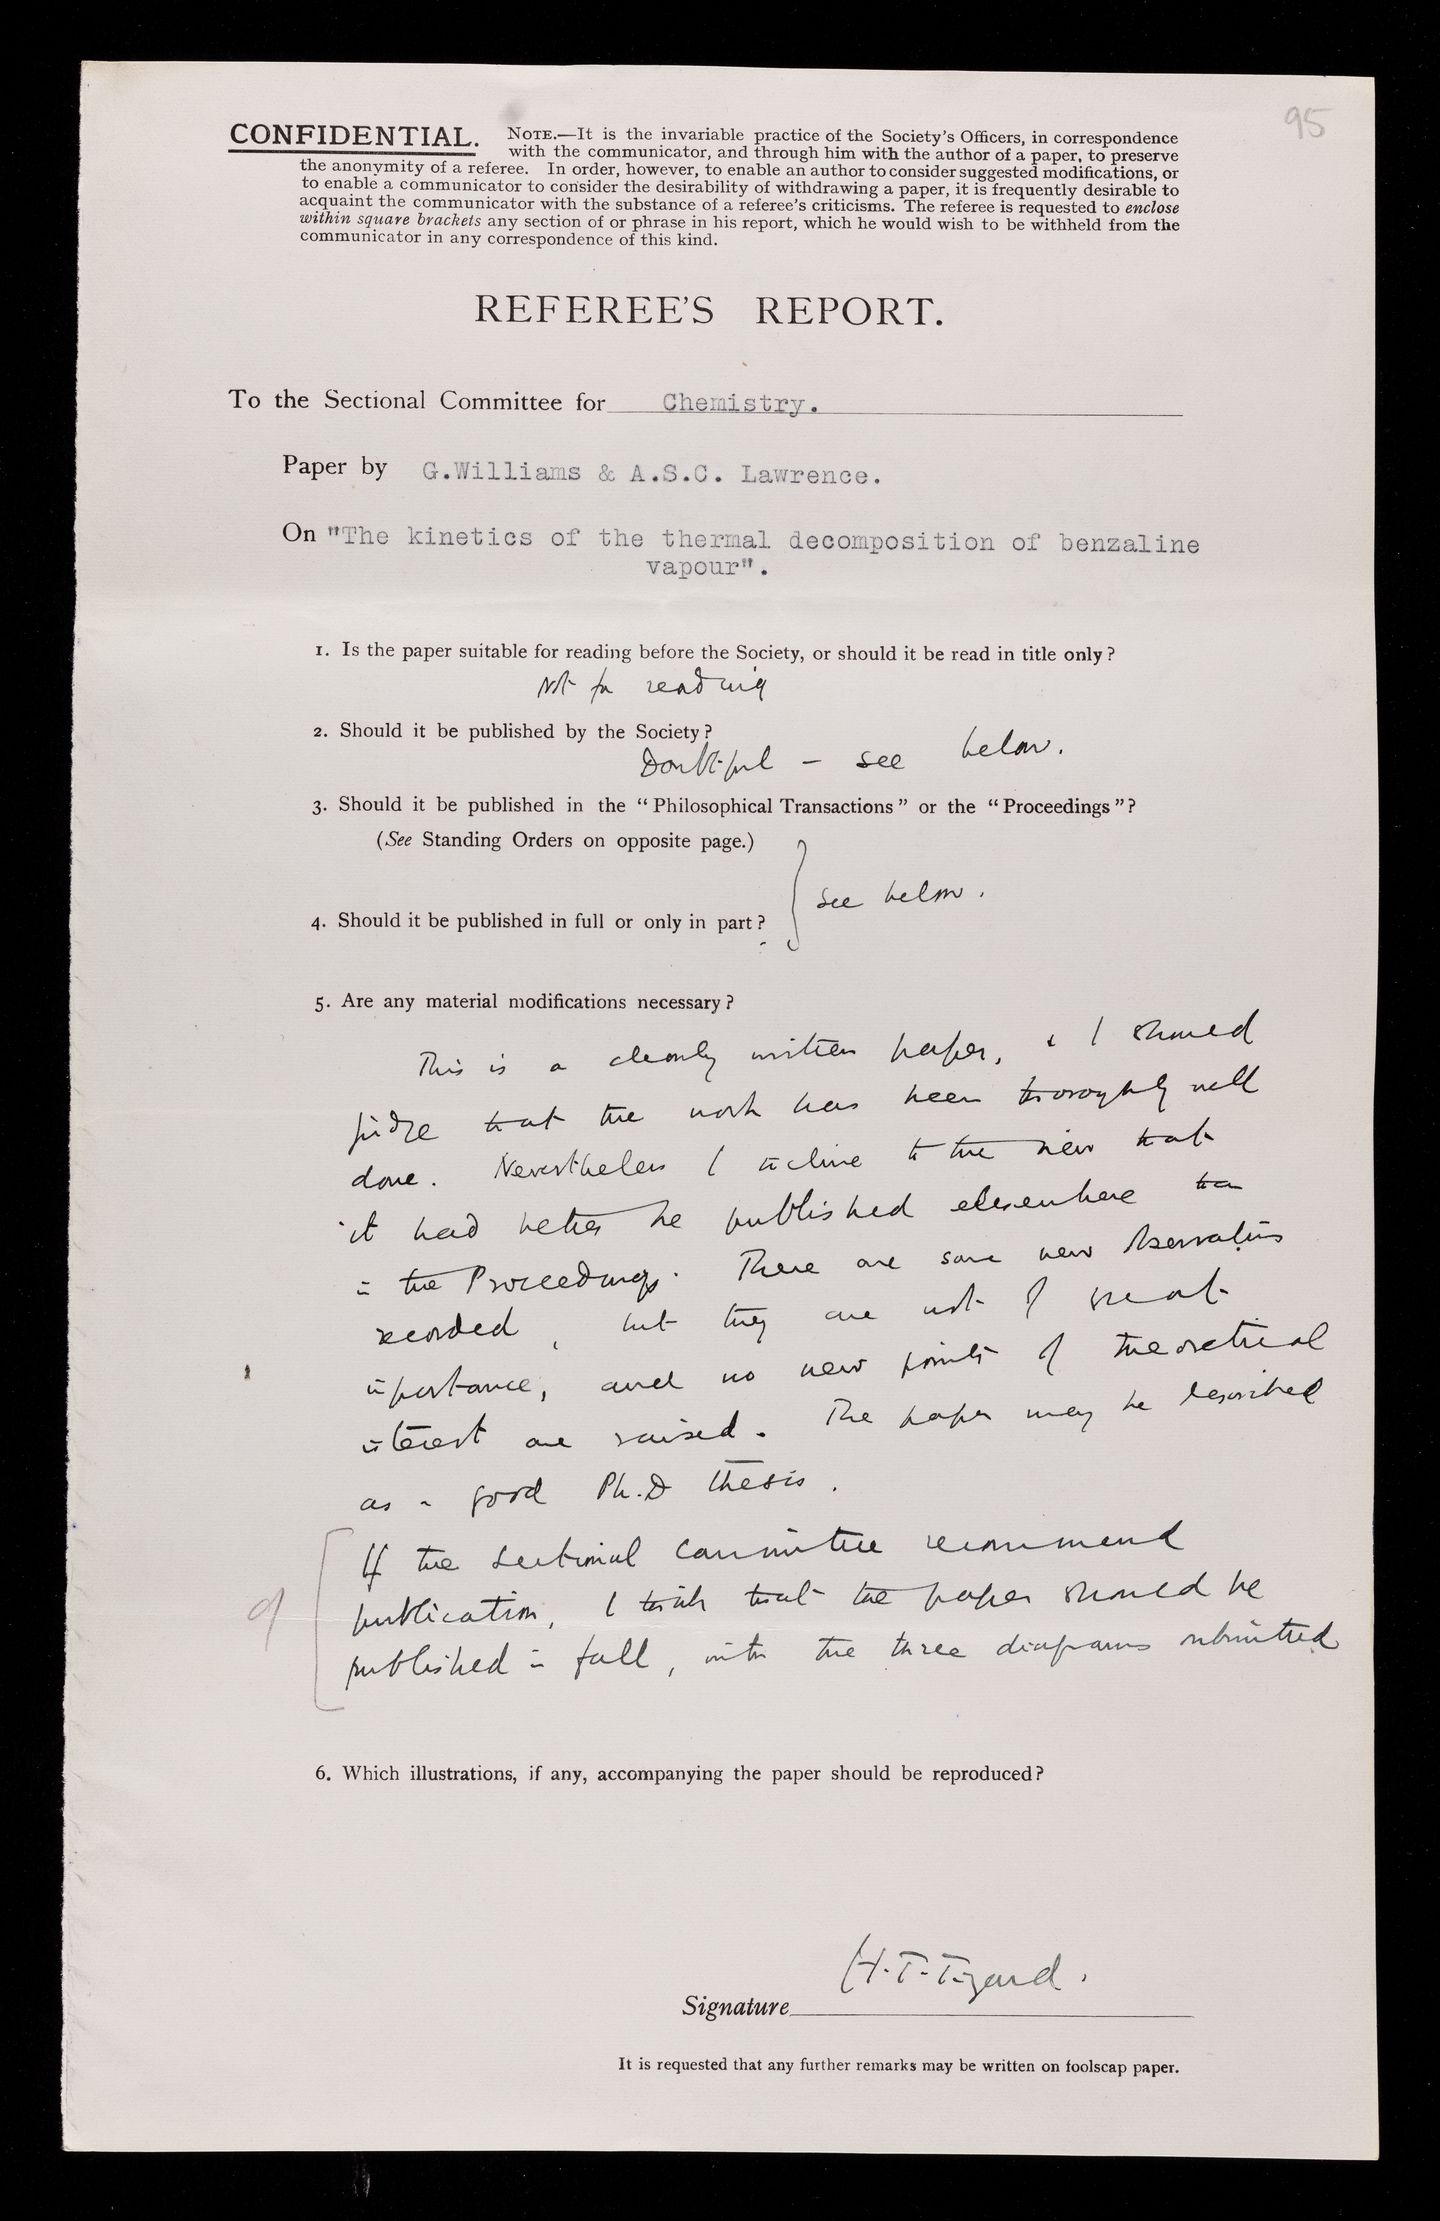 95
CONFIDENTIAL. NOTE.—It is the invariable practice of the Society's Officers, in correspondence
with the communicator, and through him with the author of a paper, to preserve
the anonymity of a referee. In order, however, to enable an author to consider suggested modifications, or
to enable a communicator to consider the desirability of withdrawing a paper, it is frequently desirable to
acquaint the communicator with the substance of a referee's criticisms. The referee is requested to enclose
within square brackets any section of or phrase in his report, which he would wish to be withheld from the
communicator in any correspondence of this kind.
REFEREE'S REPORT.
To the Sectional Committee for Chemistry.
Paper by G.Williams & A.S.C. Lawrence.
On "The kinetics of the thermal decomposition of benzaline
vapour".
1. Is the paper suitable for reading before the Society, or should it be read in title only?
Not for reading
2. Should it be published by the Society?
Doubtful - see below.
3. Should it be published in the "Philosophical Transactions" or the "Proceedings"?
(See Standing Orders on opposite page.)
see below.
4. Should it be published in full or only in part?
5. Are any material modifications necessary?
This is a clearly written paper, & I should
judge that the work has been thoroughly well
done. Nevertheless I incline to the view that
it had better be published elsewhere than
in the Proceedings. There are some new observations
recorded, but they are not of great
importance, and no new points of theoretical
interest are raised. The paper may be described
as a good Ph.D thesis.
If the sectional committee recommend
publication, I think that the paper should be
published in full, with the three diagrams submitted
6. Which illustrations, if any, accompanying the paper should be reproduced?
H.T.Tizard.
Signature
It is requested that any further remarks may be written on foolscap paper.